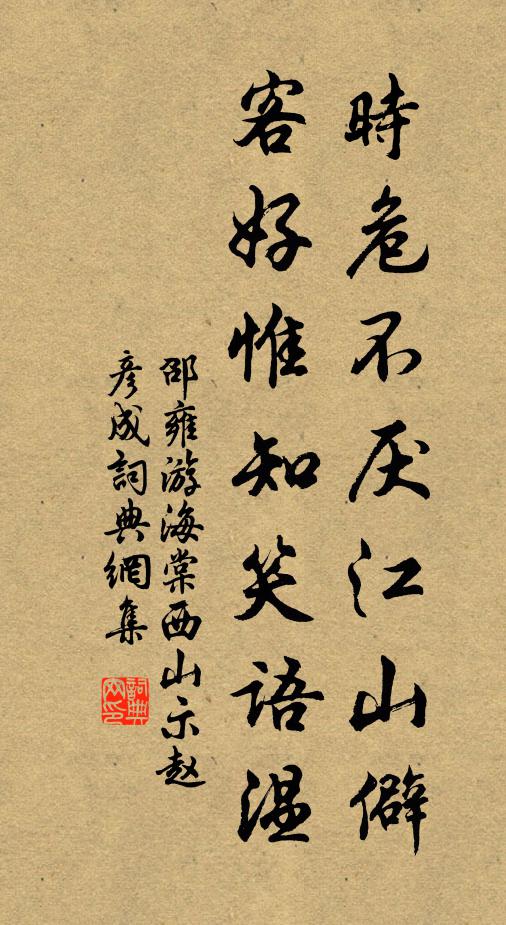 時危不厌江山僻
客好惟知笑語温
邵雍游海棠西山示赵
彦成詞典網集
詞典
网印